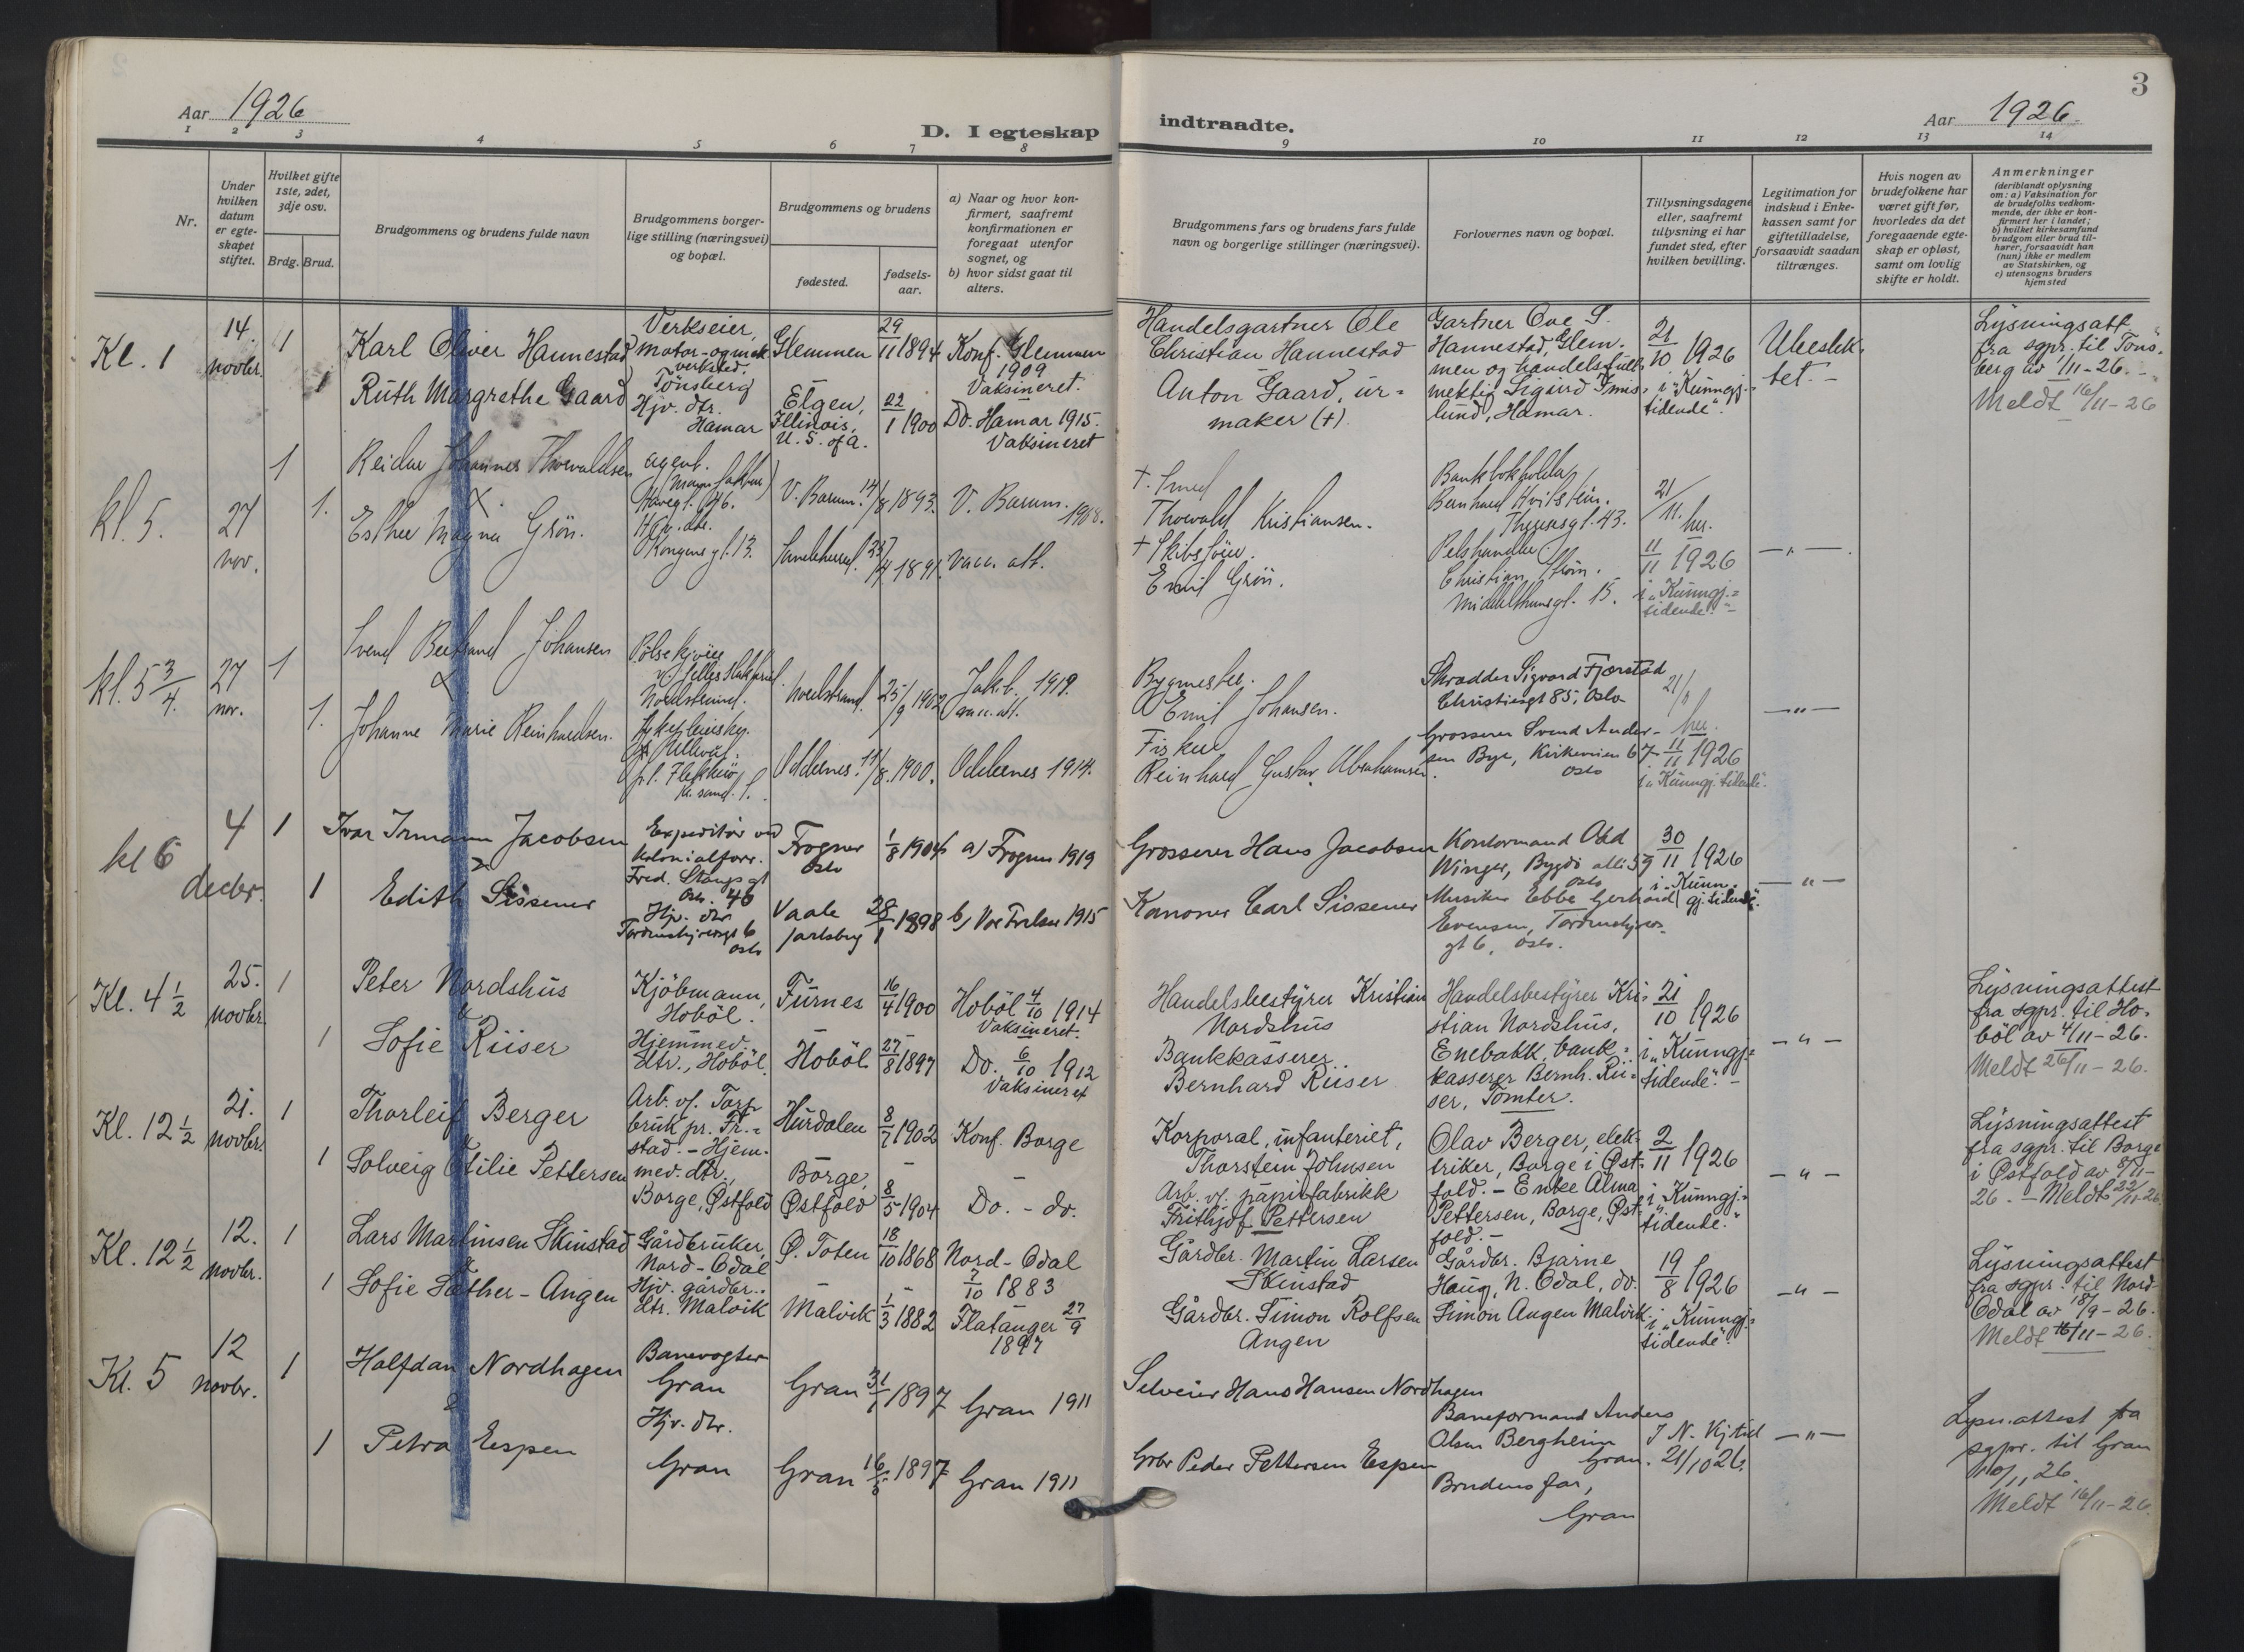 3
Aar 1926
D. I egteskap indtraadte.
Aar 1926.
1 2 3 4 5 6 7 8 9 10 11 12 13 14
Nr.
Under
hvilken
datum
er egte-
skapet
stiftet.
Hvilket gifte
1ste, 2det,
3dje osv.
Brdg. Brud.
Brudgommens og brudens fulde navn
Brudgommens borger-
lige stilling (næringsvei)
og bopæl.
Brudgommens og brudens
fødested.
fødsels-
aar.
a) Naar og hvor kon-
firmert, saafremt
konfirmationen er
foregaat utenfor
sognet, og
b) hvor sidst gaat til
alters.
Brudgommens fars og brudens fars fulde
navn og borgerlige stillinger (næringsvei).
Forlovernes navn og bopæl.
Tillysningsdagene
eller, saafremt
tillysning ei har
fundet sted, efter
hvilken bevilling.
Legitimation for
indskud i Enke-
kassen samt for
giftetilladelse,
forsaavidt saadan
tiltrænges.
Hvis nogen av
brudefolkene har
været gift før,
hvorledes da det
foregaaende egte-
skap er opløst,
samt om lovlig
skifte er holdt.
Anmerkninger
(deriblandt oplysning
om: a) Vaksination for
de brudefolks vedkom-
mende, der ikke er kon-
firmert her i landet;
b) hvilket kirkesamfund
brudgom eller brud til-
hører, forsaavidt han
(hun) ikke er medlem
av Statskirken, og
c) utensogns bruders
hjemsted
Kl. 1
14.
novbr.
1
Karl Oliver Hannestad
Verkseier,
Motor- og mek.
verksted.
Tönsberg
Glemmen
29/11 1894
Konf. Glemmen
1909
Vaksineret.
Handelsgartner Ole
Christian Hannestad
Gartner Ove S.
Hannestad, Glem-
men og handelsfull-
mektig Sigurd
lund, Hamar.
21/10 1926
i "Kunngj.-
tidende".
Lysningsatt.
fra sgpr. til Töns-
berg av 1/11-26.-
Meldt 16/11-26
1
Ruth Margrethe Gaard
Hjv. dtr.
Hamar
Elgen,
Illinois,
U.S. of A.
22/1 1900
Do. Hamar 1915.
Vaksineret
Anton Gaard, ur-
maker (+).
kl. 5.
27
nov.
1
Reidar Johannes Thorvaldsen
Agent.
V. Bærum.
14/8 1893.
V. Bærum.
1908.
+ Smed
Thorvald Kristiansen.
Bankbokholder
21/11. her.
11/11 1926
i "Kunngj.-
tidende".-
—"—.
1.
Esther Magna Grön.
Hjv. dtr.
Kongens gt. 13.
23/4 1891.
vacc. att.
+ Skibsförer.
Emil Grön.
Pelshandler
Middelthunsgt. 15.
kl. 5 3/4.
27
nov.
1
Svend Johansen
Nordstrand.
Nordstrand
25/9 1902
Jakob. 1919.
vacc. att.
Bygmester.
Emil Johansen.
Skrædder Sigvard Fjerstad
Christiesgt 85, Oslo
21/11
her.
11/11 1926
i "Kunngj. tidende".
—"—
1.
Johanne Marie Reinhardsen.
Oddernes.
11/8. 1900.
Oddernes 1914.
Fisker
Reinhard Gustav Abrahamsen.
Grosserer Svend Ander-
sen Bye, Kirkeveien 67
Oslo
kl 6
4
decbr.
1
Ivar Irmann Jacobsen
Expeditør ved
kolonialforr.
Fred. Stangs gt
Oslo. 46
Frogner
Oslo
1/8 1904
a) Frogner 1919
Grosserer Hans Jacobsen
Kontormand Odd
Winger, Bygdö allé 59
Oslo
30/11 1926
i "Kunn-
gj. tidende".
—"—
1
Edith Sissener
Hjv. dtr
Tordenskjoldsgt 6
Oslo
Vaale
Jarlsberg
28/1 1898
b) Vor Frelser 1915
Kanoner Carl Sissener
Musiker Ebbe Gerhard
Evensen, Tordenskjolds-
gt 6, Oslo.
Kl. 4 1/2
25.
novbr.
1
Peter Nordshus
Kjöbmann,
Hoböl.
Furnes
16/4 1900
Hoböl 4/10 1914
Vaksineret.
Handelsbestyrer Kristian
Nordshus
Handelsbestyrer Kri-
stian Nordshus,
Enebakk, bank-
kasserer Bernh. Rii-
ser, Tomter.
21/10 1926
i "Kunngj.-
tidende".-
—"—
Lysningsattest
fra sgpr. til Ho-
böl av 4/11-26.
Meldt 26/11-26.
1
Sofie Riiser
Hjemmev.
dtr., Hoböl.
Hoböl
27/8 1897
Do. 6/10 1912
Vaksineret
Bankkasserer
Bernhard Riiser
Kl. 12 1/2
21.
novbr.
1
Thorleif Berger
Arb. v/. Torp
bruk pr. Fr.-
stad.- Hjem-
mev. dtr.,
Borge, Østfold
Hurdalen
8/7 1902
Konf. Borge
Korporal, infanteriet,
Thorstein Johnsen
Olav Berger, elek-
triker, Borge i Øst-
fold. - Enke Alma
Pettersen, Borge, Øst-
fold.-
2/11 1926
i "Kunngj.-
tidende."
—"—
Lysningsattest
fra sgpr. til Borge
i Østfold av 8/11-
26. - Meldt 22/11-26
1
Solveig Otilie Pettersen
Borge,
Østfold
8/5 1904
Do. - do.
Arb. v/. papirfabrikk
Frithjof Pettersen
Kl. 12 1/2
12.
novbr.
1
Lars Martinsen Skinstad
Gårdbruker,
Nord-Odal
Ø. Toten
18/10 1868
Nord-Odal
7/10 1883
Gårdbr. Martin Larsen
Skinstad
Gårdbr. Bjarne
Haug, N. Odal, do.
Simon Angen Malvik
19/8 1926
i "Kunngj.-
tidende".
—"—
Lysningsattest
fra sgpr. til Nord-
Odal av 18/9-26.
Meldt 16/11-26.
1
Sofie Sæther-Angen
Hjv. gårdbr.-
dtr. Malvik
Malvik
1/3 1882
Flatanger 27/9
1897
Gårdbr. Simon Rolfsen
Angen
Kl. 5
12
novbr.
1
Halfdan Nordhagen
Banevogter
Gran
Gran
31/1 1897
Gran 1911
Selveier Hans Hansen Nordhagen
Baneformand Anders
Olsen Bergheim
Gran.
I N. Kj. tid
21/10 26.
—"—
Lysn.attest fra
sgpr. til Gran
10/11 26.
Meldt 16/11-26.
1
Petra Espen
Hjv. dtr.
Gran
Gran
1897
Gran 1911
Grbr Peder Pettersen Espen
Brudens far,
Gran